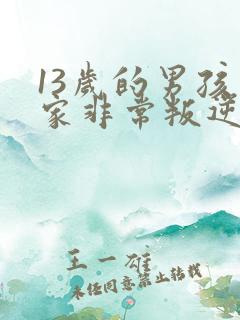 13岁的男孩
家非常叛逆
王一雄
未经同意禁止转载